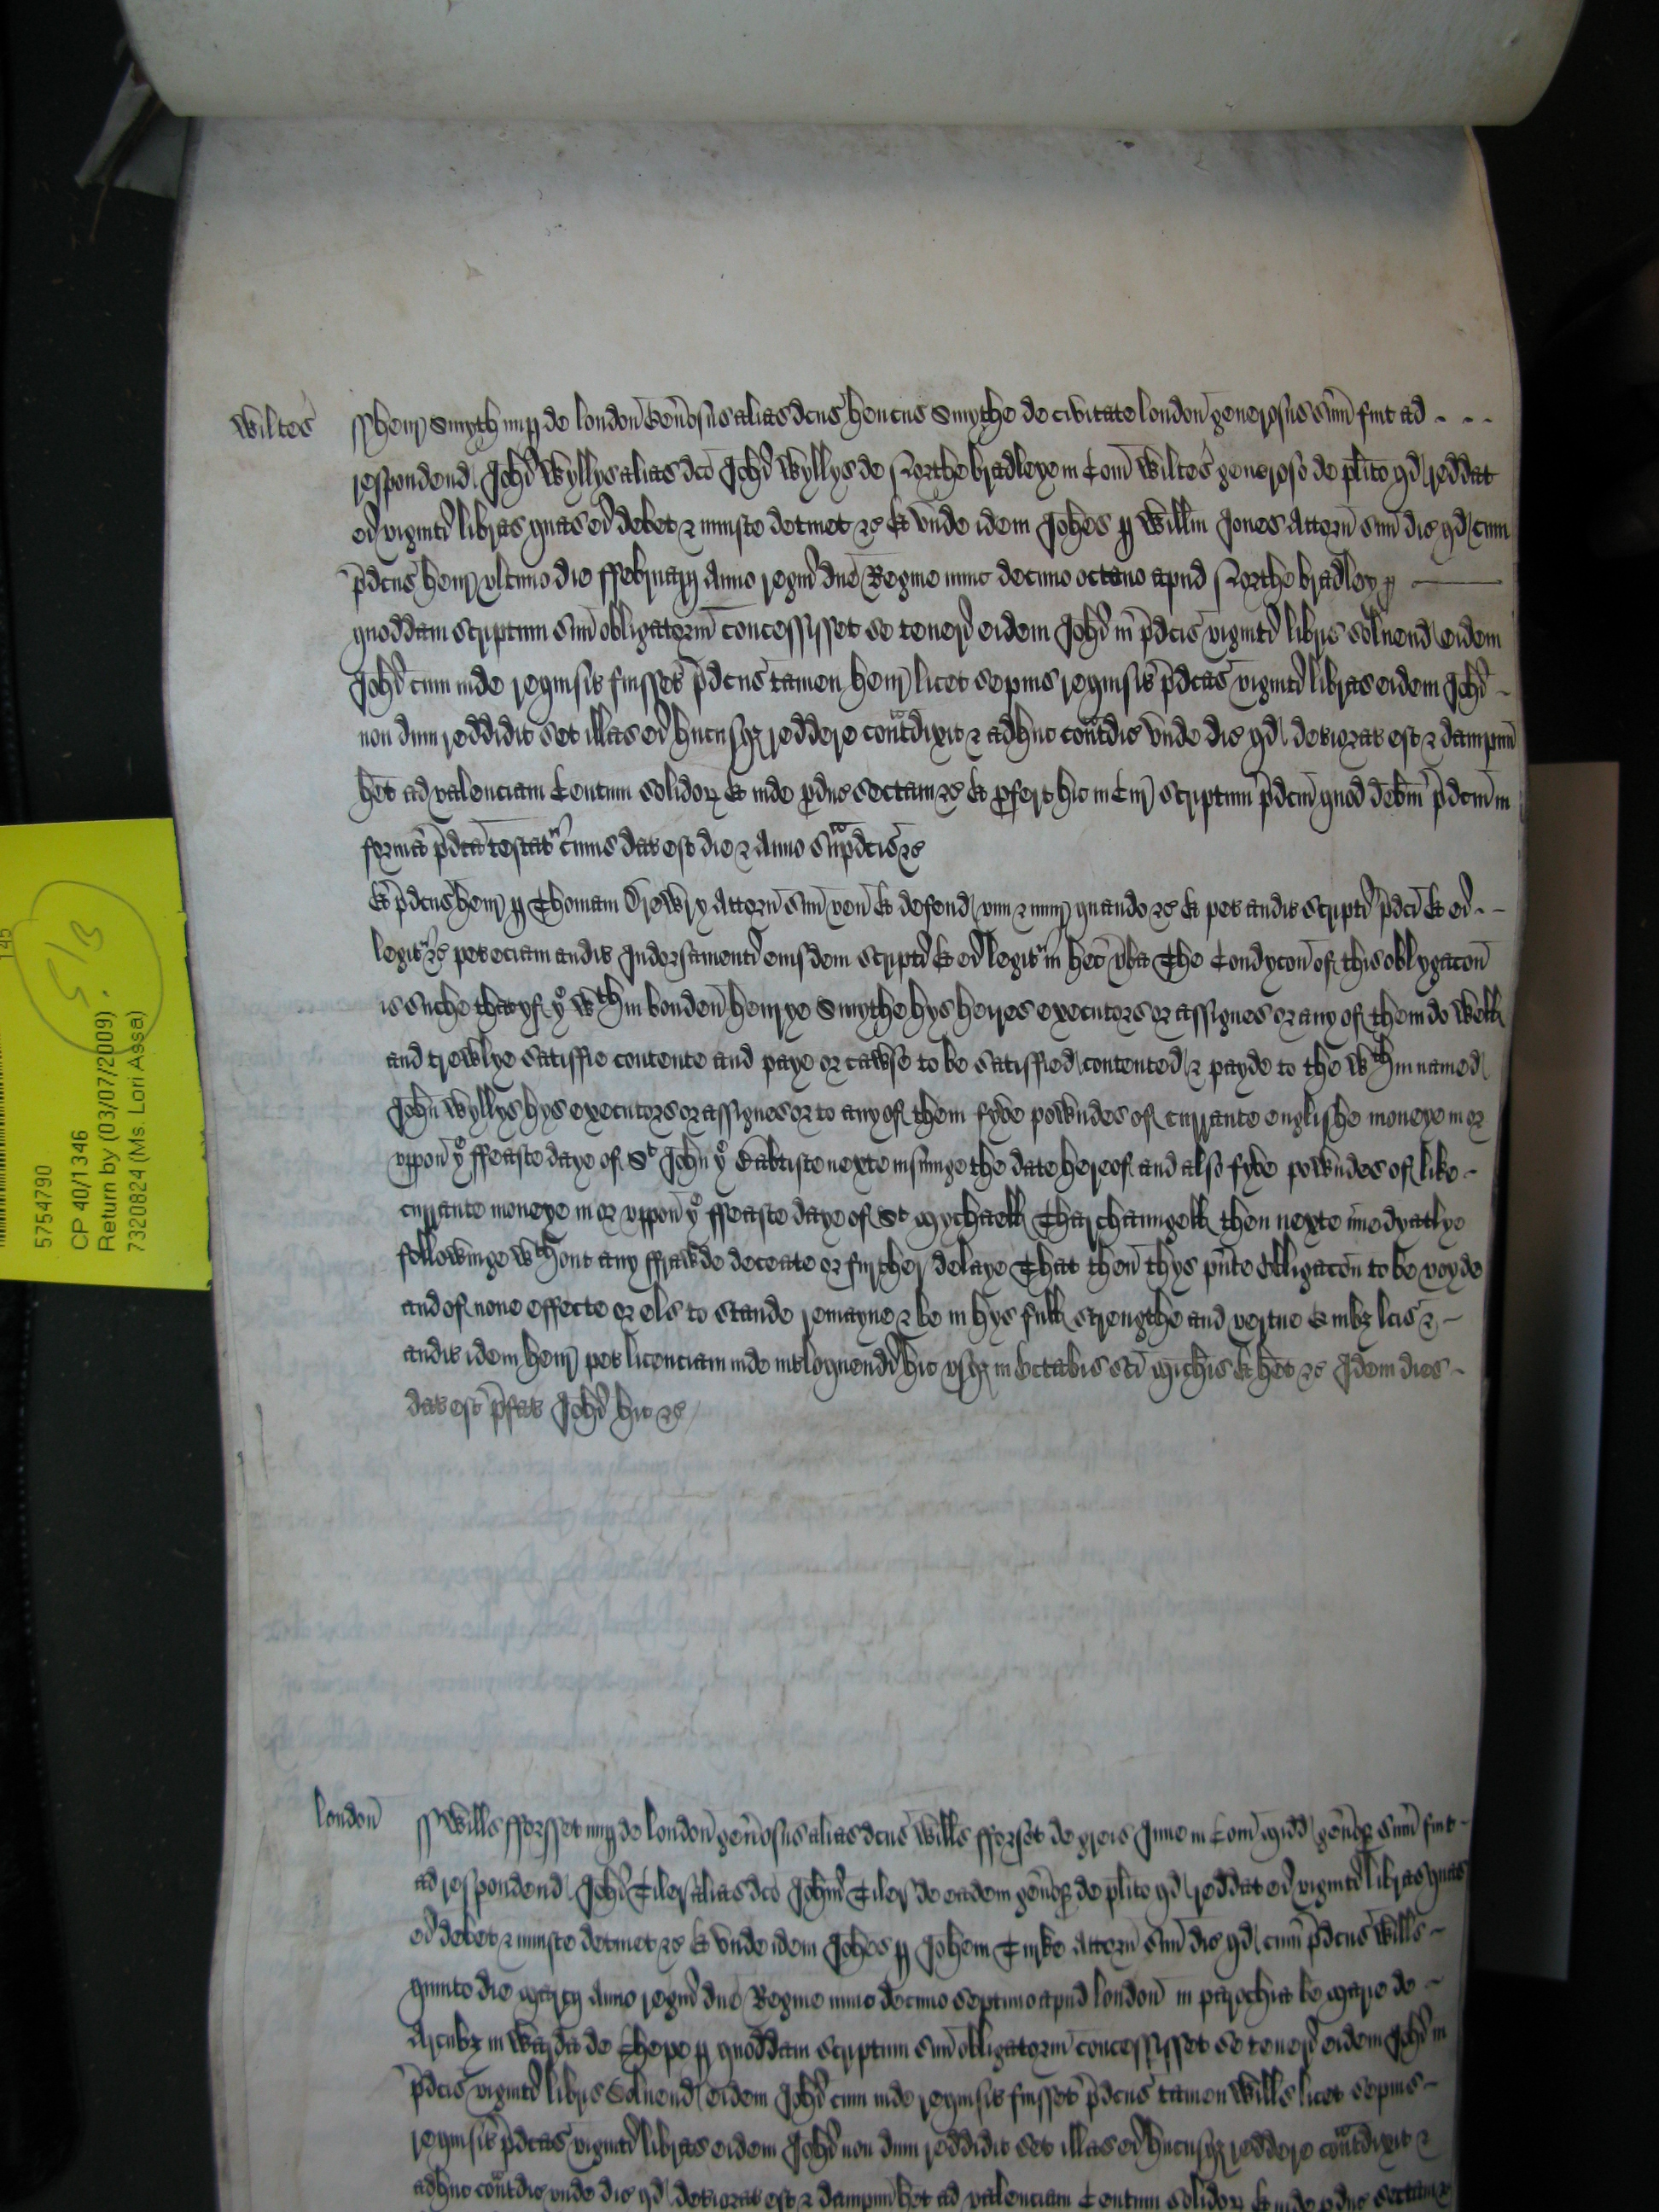 Wiltes
ss Henr Smyth nup de london Gen̄osus alias dc̄us henrıcus Smythe de civitate london generosus sum̄ fuit ad - - -
respondend Joh̄i Wyllys alias dc̄o Joh̄i Wyllys de Northebradleye in Com̄ Wiltes generoso de pl̄ito qd reddat
ei viginti libras quas ei debet & iniuste detinet &c Et vnde idem Joh̄es p Will̄m Jones Attorn̄ suu̅ dic̄ qd cum
p̄dcūs Henr vltimo die ffebruarij Anno regni dn̄e Regine nunc decimo octavo apud Northebradley p
quoddam scriptum suu̅ obligatoriu̅ concessisset se teneri eidem Joh̄i in p̄dcīs viginti libris solvend eidem
Joh̄i cum inde requisit fuisset p̄dcūs tamen Henr licet sepius requisit p̄dcās viginti libras eidem Joh̄i -
non dum reddidit set illas ei hucusqz reddere cont̄dixit & adhuc cont̄dic vnde dic qd deteriorat est & dampnu̅
h̄et ad valenciam Centum solidor Et inde p̄duc sectam &c Et p̄fert hic in Cur scriptum p̄dcm̄ quod debm̄ p̄dcm̄ in
forma p̄dcā testat cuius dat est die & Anno sup̄dcīs &c
Et p̄dcūs Henr p Thomam Drewry Attorn̄ suu̅ ven̄ Et defend vim & iniur quando &c Et pet audit scripti p̄dcī Et ei - -
legit &c pet eciam audit Indorsamenti eiusdem scripti Et ei legit in hec v̄ba The Condycon̄ of this oblygacon̄
is suche that yf ye wthin bonden̄ henrye Smythe hys heires executors or assignes or any of them do well
and trewlye satisfie contente and paye or cawse to be satisfied contented & payde to the wthin named
John Wyllys hys executors or assignes or to any of them fyve powndes of currante englishe moneye in or
vppon̄ ye ffeaste daye of St John ye Babtiste nexte insuinge the date hereof and also fyve powndes of like -
currante moneye in or vppon̄ ye ffeaste daye of St Mychaell Tharchaungell then nexte im̄edyatlye
followinge wthout any ffrawde deceate or further delaye That then̄ thys pn̄te obligacon̄ to be voyde
and of none effecte or els to stande remayne & be in hys full strengthe and vertue Quibz lc̄is & -
audit idem Henr pet licenciam inde interloquendi hic vsqz in Octabis sc̄i Mich̄is Et h̄et &c Idem dies -
dat est p̄fat Joh̄i hic &c
london̄
ss Will̄s fforsset nup de london̄ gen̄osus alias dcūs Will̄s fforset de greis Inne in Com̄ Midd gen̄os sum̄ fuit -
ad respondend Joh̄i Tiler alias dc̄o Joh̄i Tiler de eadem gen̄os de pl̄ito qd reddat ei viginti libras quas
ei debet & iniuste detinet &c Et vnde idem Joh̄es p Joh̄em Turke Attorn̄ suu̅ dic̄ qd cum p̄dcūs Will̄s -
quinto die Marcij Anno regni dn̄e Regine nunc decimo septimo apud london̄ in parochia be Marie de -
Arcubz in Warda de Chepe p quoddam scriptum suu̅ obligatoriu̅ concessisset se teneri eidem Joh̄i in
p̄dcīs viginti libris Solvend eidem Joh̄i cum inde requisit fuisset p̄dcūs tamen Will̄s licet sepius -
requisit p̄dcās viginti libras eidem Joh̄i non dum reddidit set illas ei hucusqz reddere cont̄dixit &
adhuc cont̄dic vnde dic qd deteriorat est & dampnu̅ h̄et ad valenciam Centum solidor Et inde p̄duc sectam &c
5754790
CP 40/1346
Return by (03/07/2009)
7320824 (Ms. Lori Assa)
145